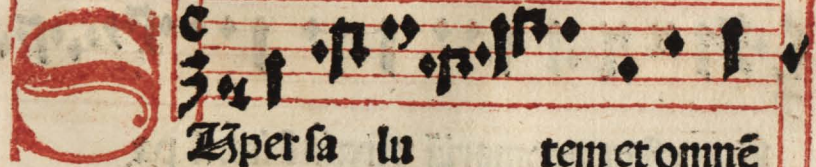 SUper sa lu tem et omnē